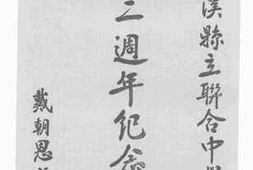 溪縣立聯合中
二週年紀念
戴朝恩